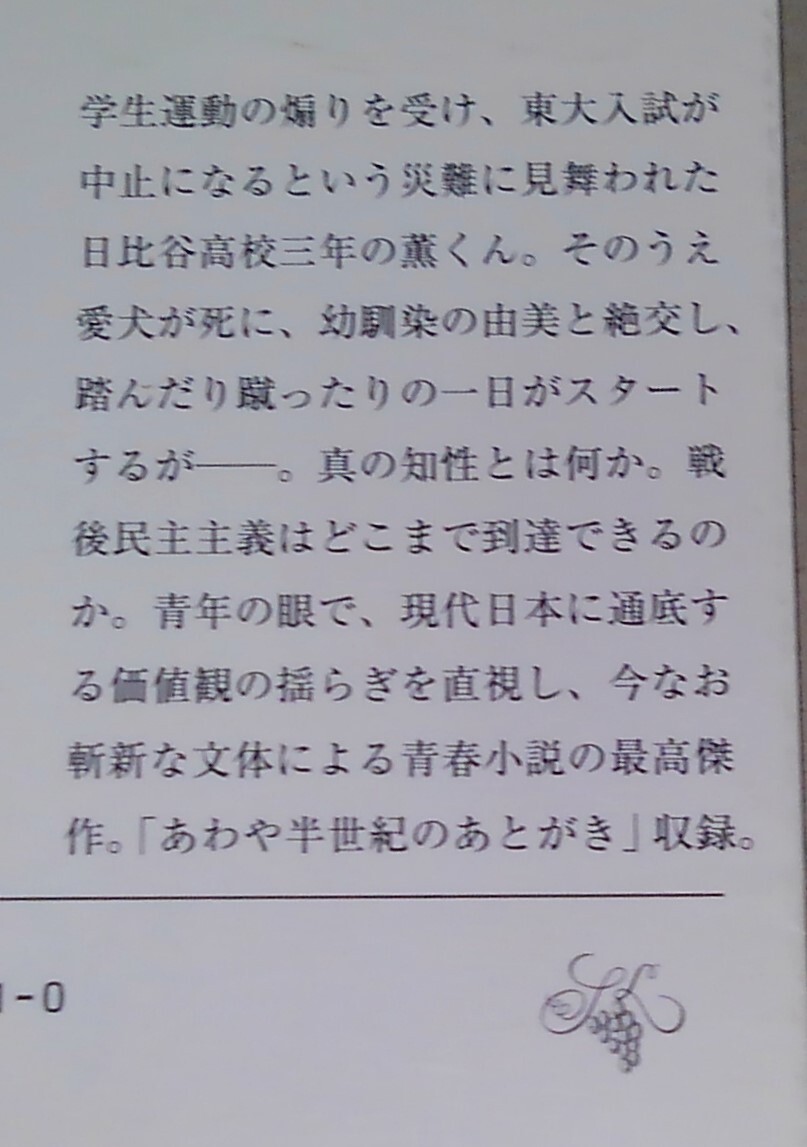 学生運動の煽りを受け、東大入試が
中止になるという災難に見舞われた
日比谷高校三年の薫くん。そのうえ
愛犬が死に、幼馴染の由美と絶交し、
踏んだり蹴ったりの一日がスタート
するが――。真の知性とは何か。戦
後民主主義はどこまで到達できるの
か。青年の眼で、現代日本に通底す
る価値観の揺らぎを直視し、今なお
斬新な文体による青春小説の最高傑
作。「あわや半世紀のあとがき」収録。
1-0